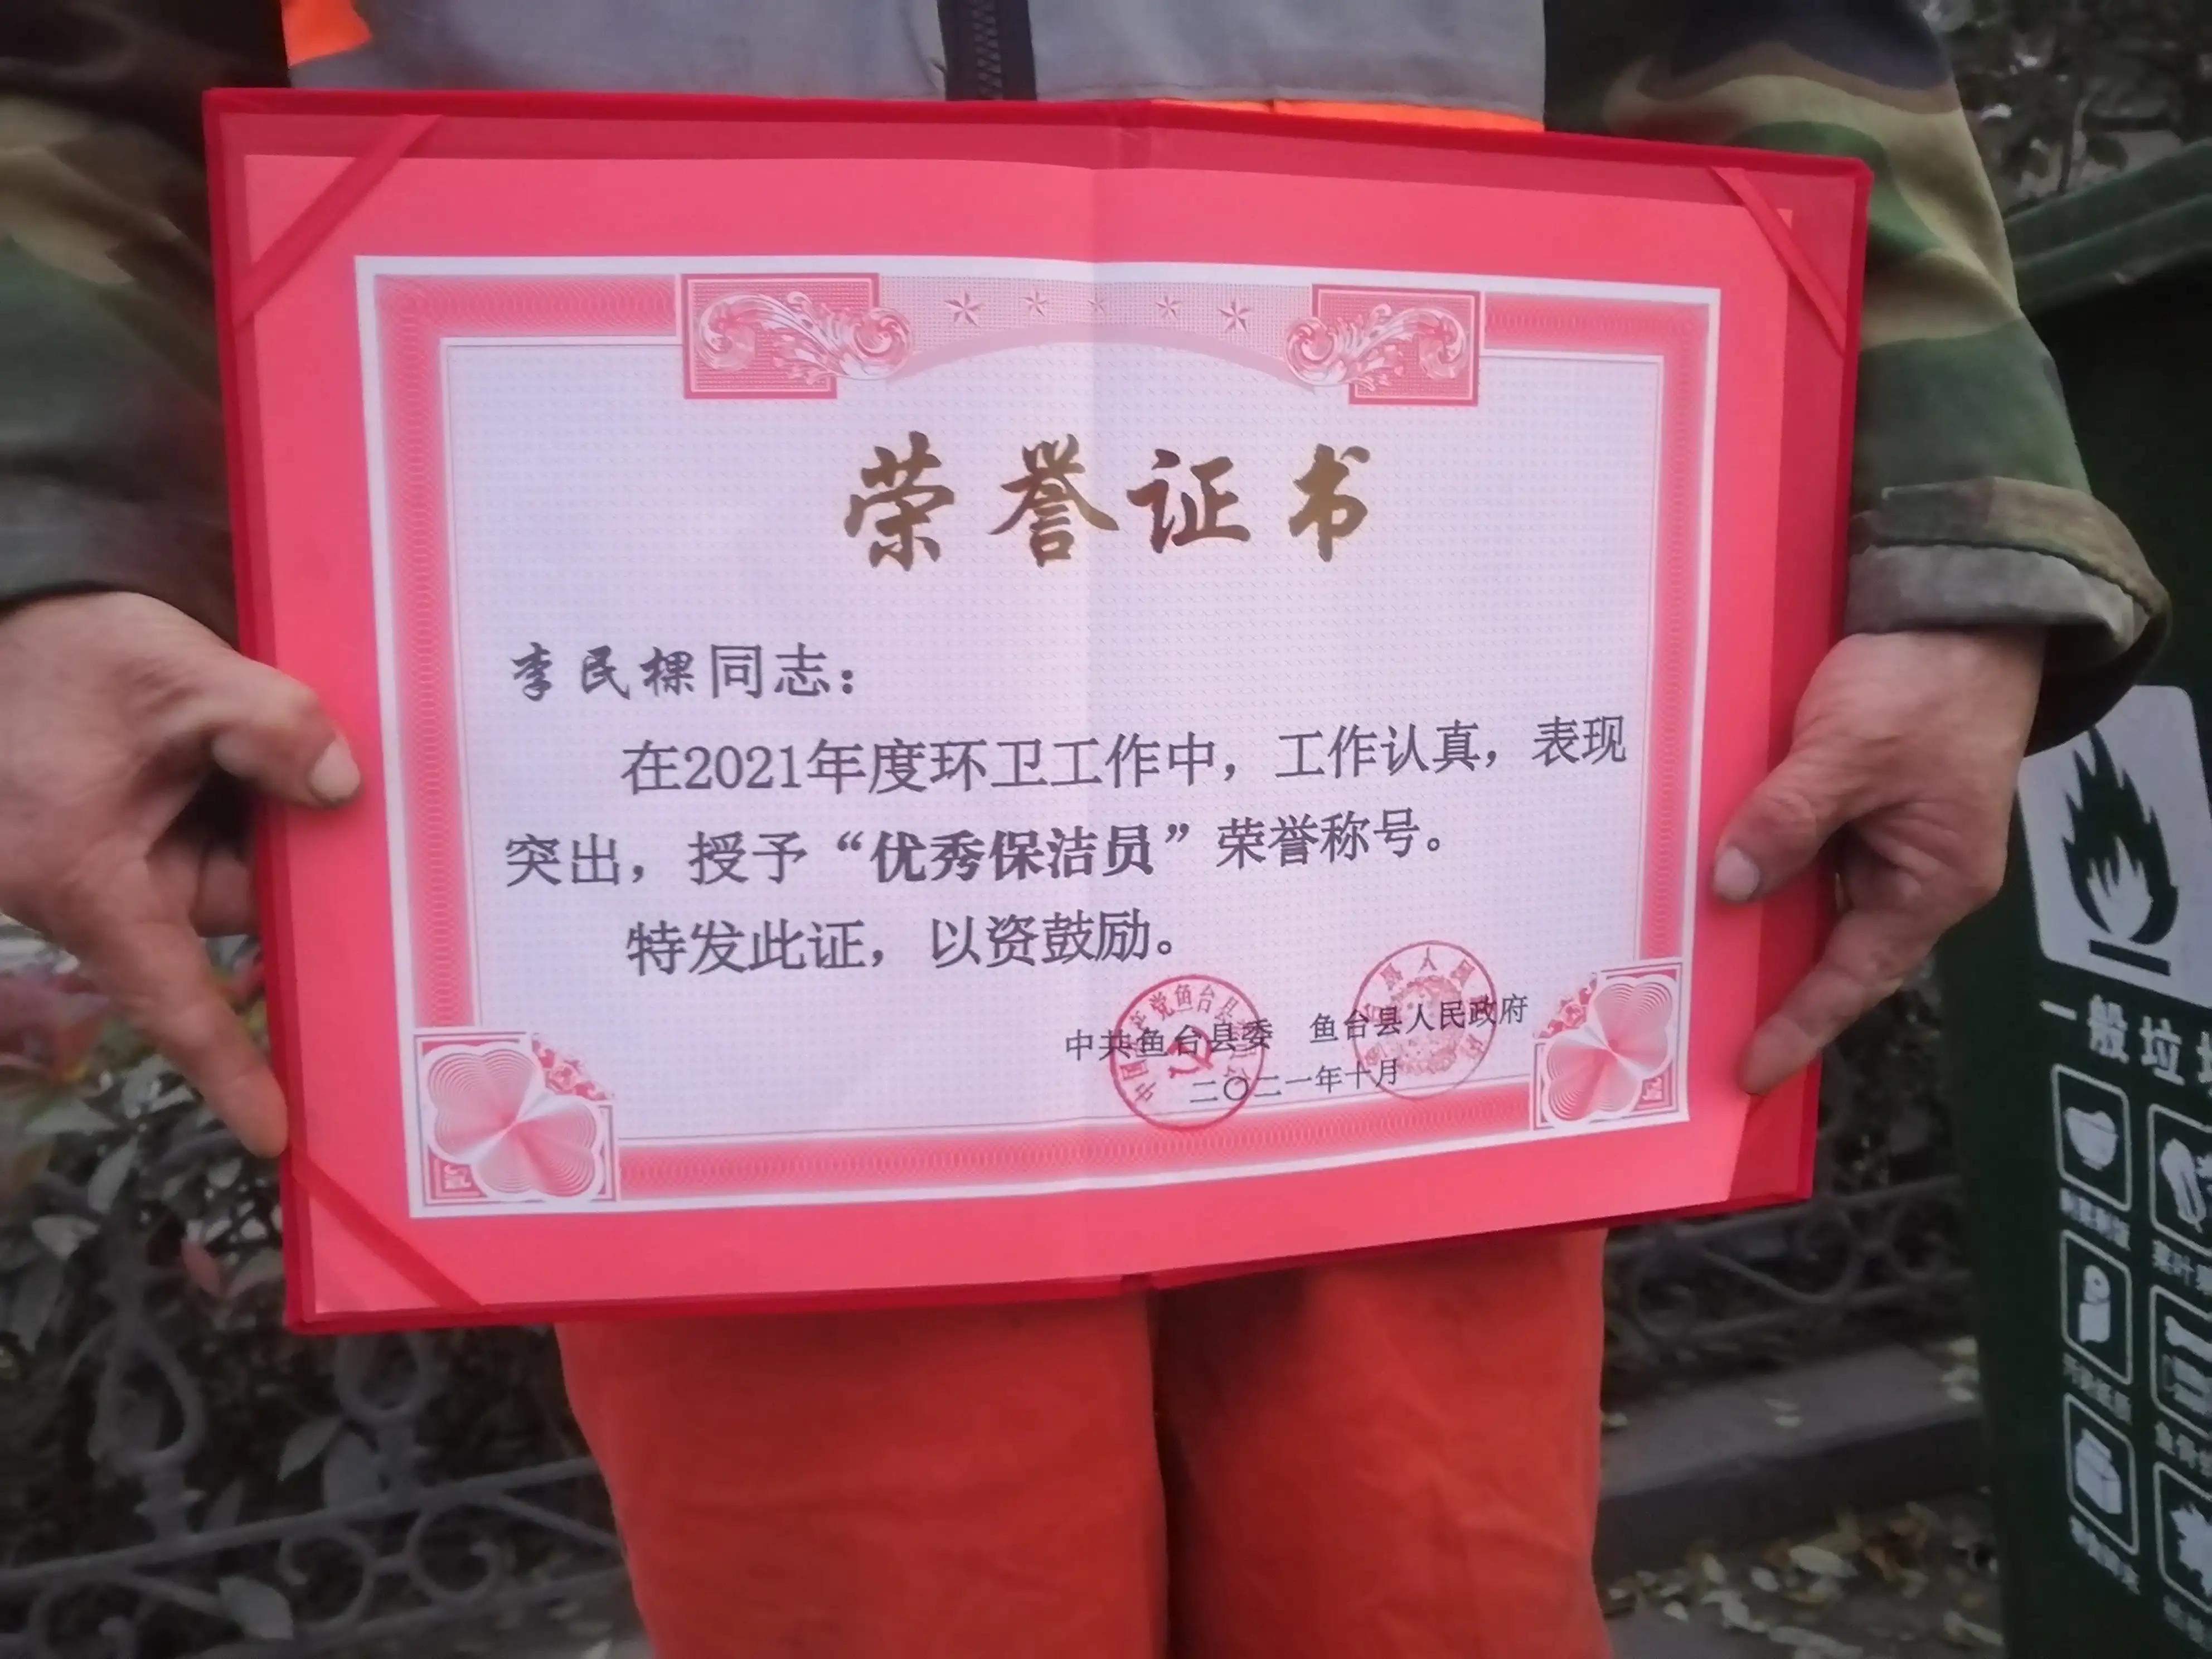 荣誉证书
李民棵同志：
在2021年度环卫工作中，工作认真，表现
突出，授予“优秀保洁员”荣誉称号。
特发此证，以资鼓励。
中共鱼台县委 鱼台县人民政府
二〇二一年十月
一般垃圾